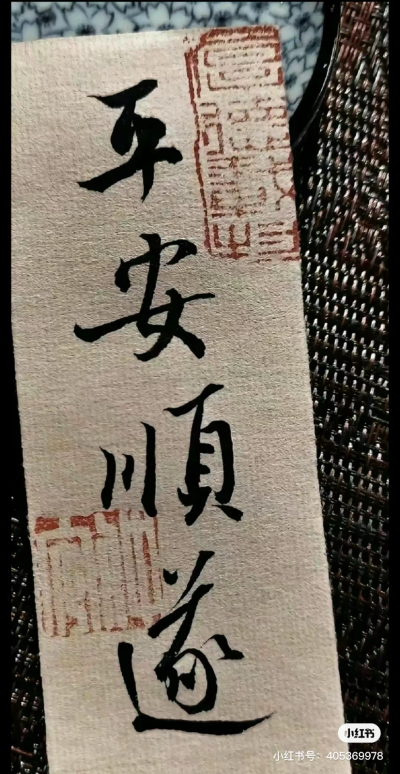 平安順遂
小红书
小红书号：405369978